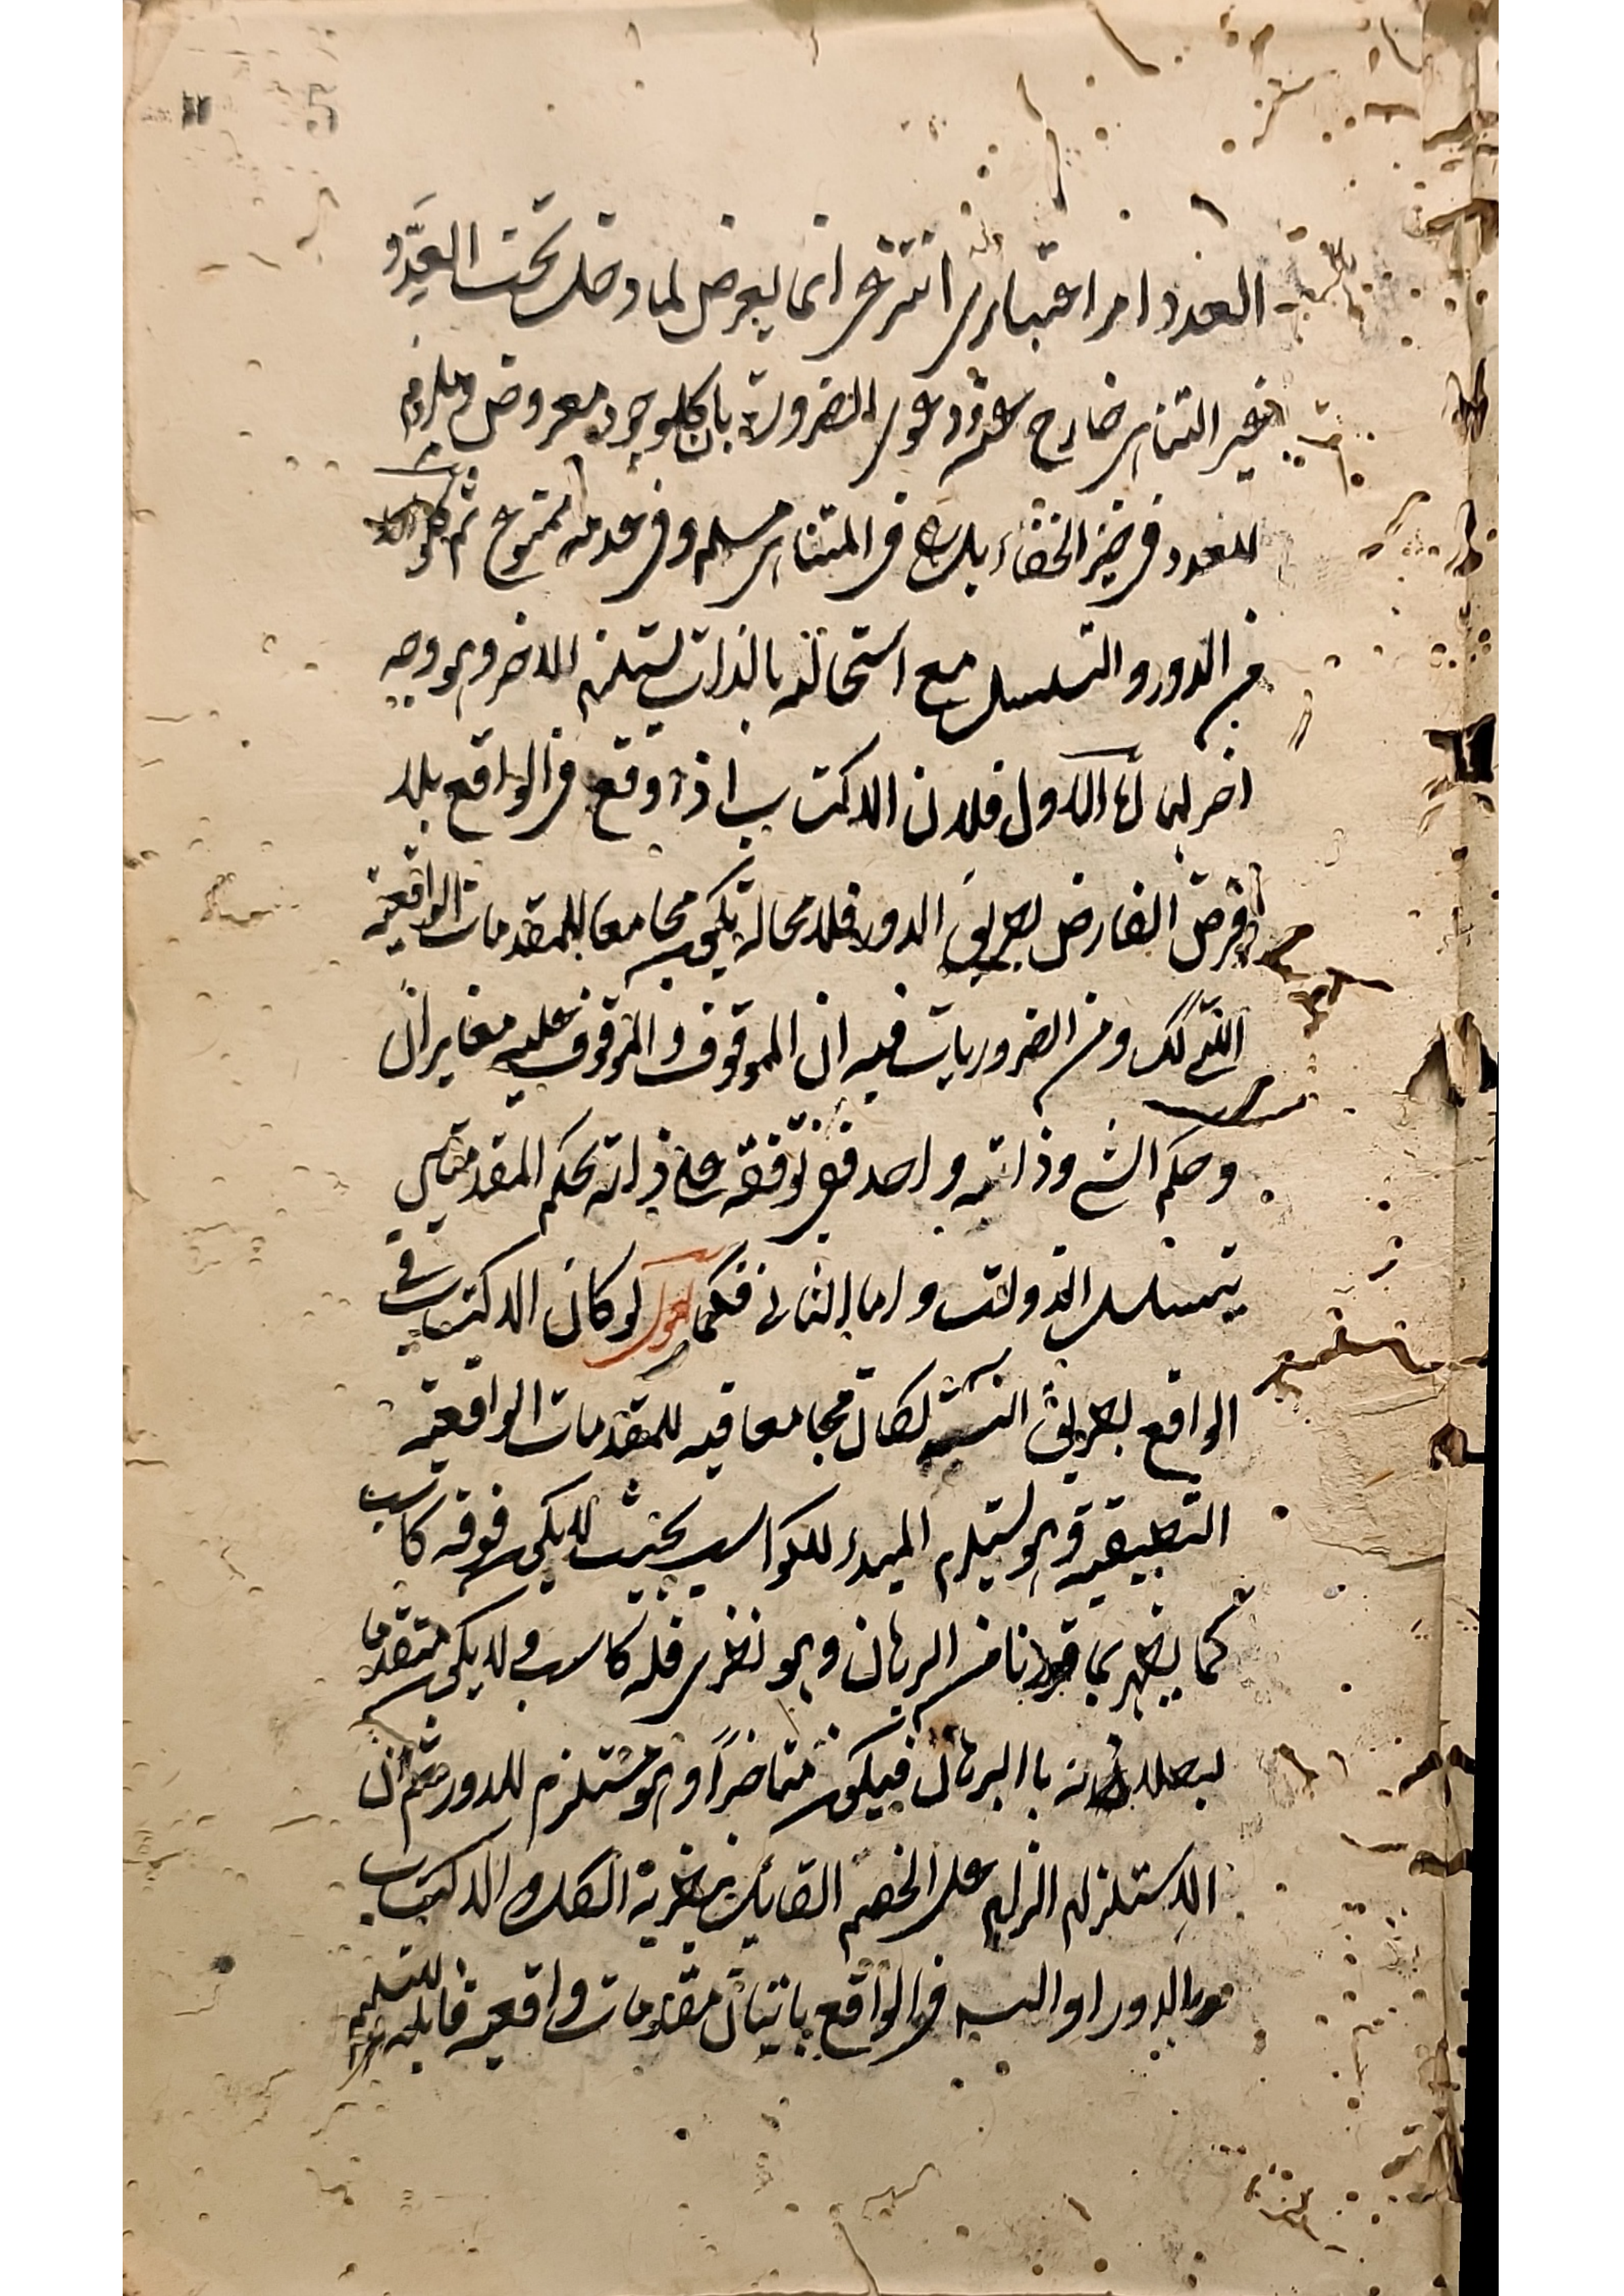 العدد امر اعتباري انتزعي انما يعرض لما دخل تحت العَدِّ و
غير المتناهي خارج عنه ودعوى الضرورة بان كل موجود معروض وملزوم
للعدد في حيز الخفاء بل هو في المتناهي مسلم وفي عدمه ممنوع ثم كل واحد
من الدور والتسلسل مع استحالته بالذات يستلزم الاخر وهو وجه
اخر لهما اما الاول فلان الاكتساب اذا وقع في الواقع بلا
فرض الفارض بطريق الدور فلا محالة يكون مجامعا للمقدمات الواقعية
التي كك ومن الضروريات فيه ان الموقوف والموقوف عليه مغايران
وحكم الشئ وذاته واحد ففي توقفه على ذاته بحكم المقدمتين
يتسلسل الذوات واما الثاني فكما نقول لو كان الاكتساب في
الواقع بطريق التسلسل لكان مجامعا فيه للمقدمات الواقعية
التطبيقية وهو يستلزم المبدء للكواسب بحيث لا يكون فوقه كاسب
كما يظهر بما قدمنا من البرهان وهو نظري فله كاسب ولا يكون متقدما
لبطلانه با البرهان فيكون متاخراً وهو مستلزم للدور ثم ان
الاستلزام الزام على الخصم القائل بنظرية الكل والاكتساب
بالدور او التسـ في الواقع باتيان مقدمات واقعية قابلة للتسليم